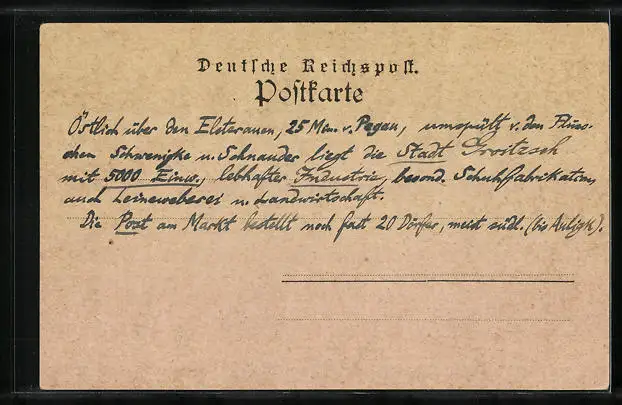 Deutsche Reichspost.
Postkarte
Östlich über den Elsterauen, 25 Min. v. Pegau, umspült v. den Flüss-
chen Schwenigke u. Schnauder liegt die Stadt Groitzsch
mit 5000 Einw., lebhafter Industrie, besond. Schuhfabrikation,
auch Leineweberei u. Landwirtschaft.
Die Post am Markt bestellt noch fast 20 Dörfer, meist südl. (bis Auligk).